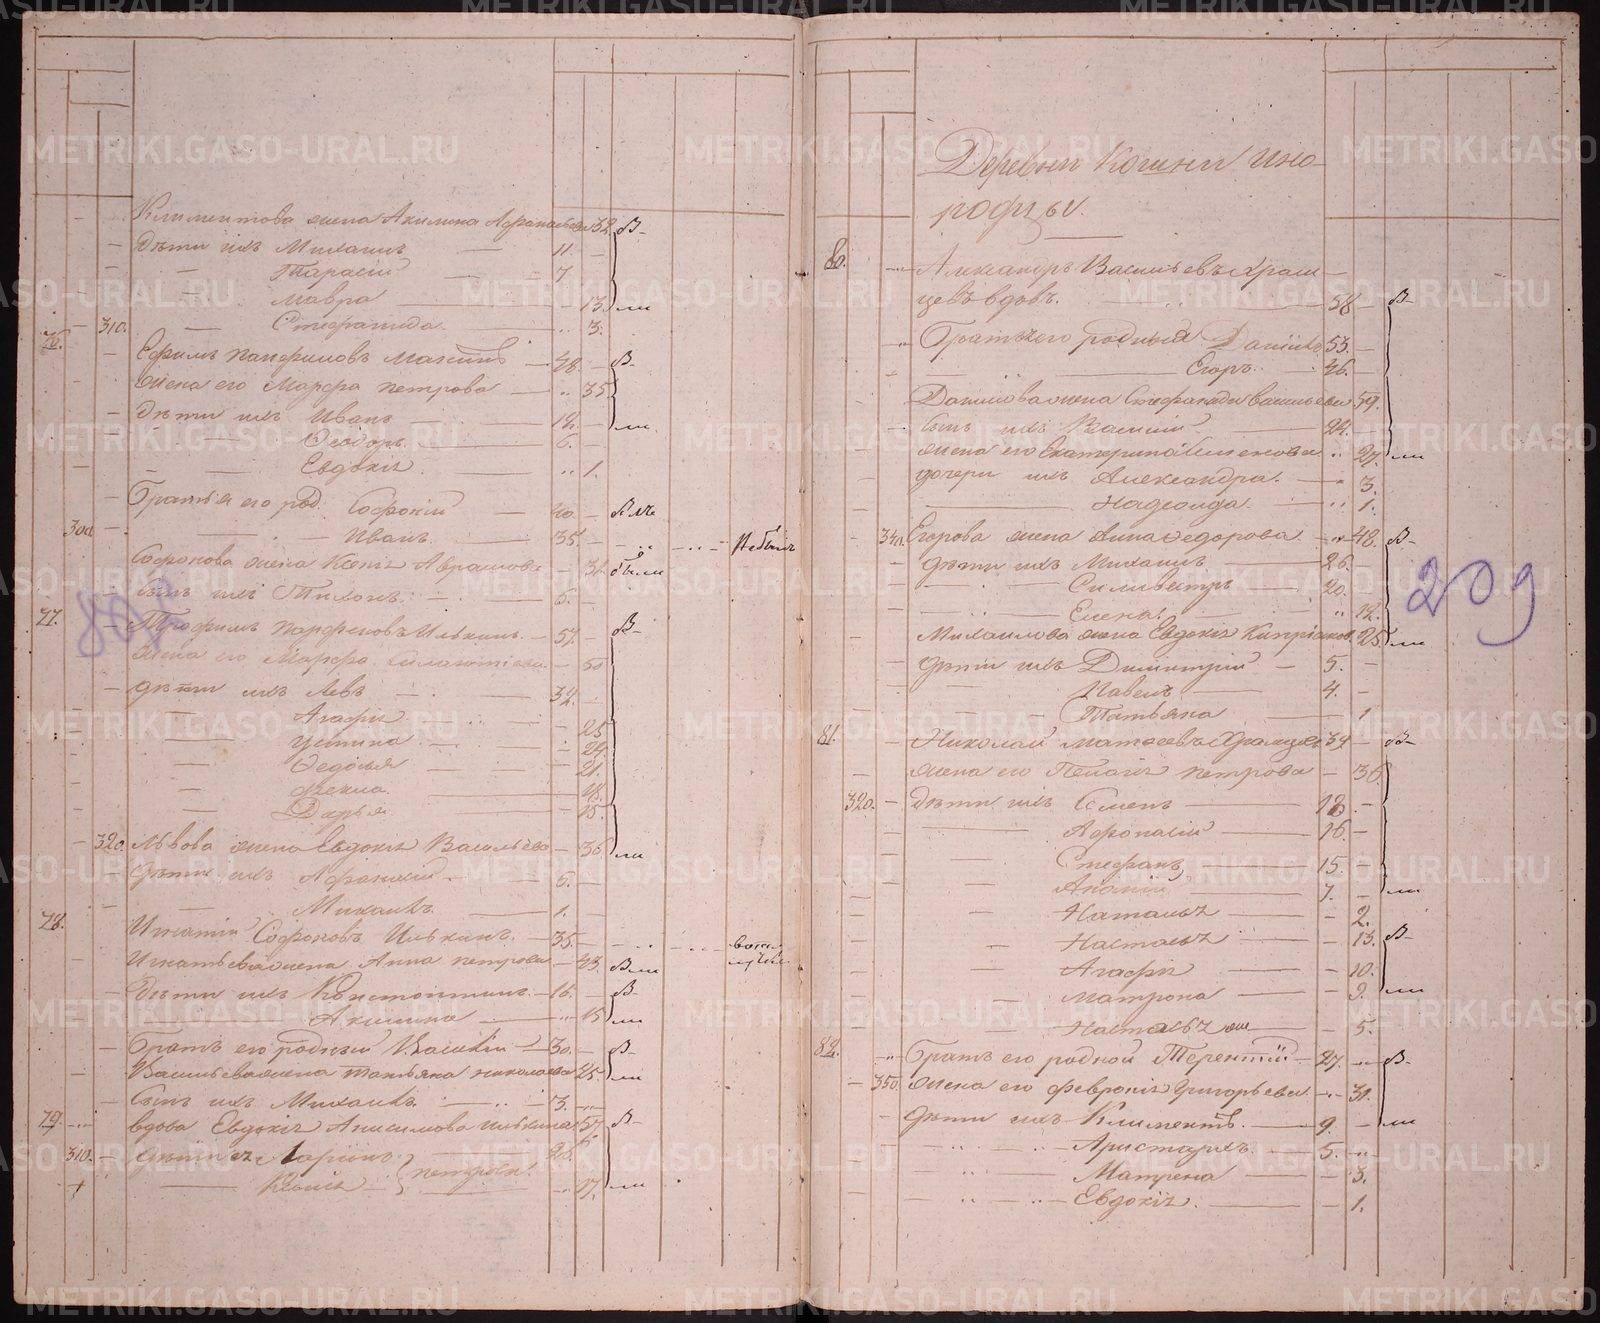 Климентова жена Акилина Афанасьева 32 В-
Дѣти ихъ Михаилъ 11
Тарасій 7
Мавра 13 ли
310. Стефанида 3.
76. Ефимъ Панфиловъ 48. В-
жена его Марфа Петрова 35
Дѣти ихъ Иванъ 12. ли
Ѳеодоръ 6.
Евдокія 1.
Братья его род. Софоній 40.
300 Иванъ 35. Небылъ
Софонова жена Ксенія 31 были
сынъ ихъ Тихонъ 6.
77. Трофимъ Парфеновъ Илькинъ 57 В-
жена его Марфа 50
Дѣти ихъ Левъ 32.
Агафія 25
Устина 24
Ѳедосья 21.
Фекла 18.
Дарья 15.
320 Львова жена Евдокія Васильева 36 ли
Дѣти ихъ Афанасій 5.
Михаилъ 1.
78. Игнатій Софоновъ Илькинъ 35.
Игнатьева жена Анна Петрова 43. Вли
Дѣти ихъ Константинъ 16. В-
Акилина 15 ли
Братъ его родный Василій 30. В-
Васильева жена Татьяна Николаева 25. ли
Сынъ ихъ Михаилъ 3.
79. вдова Евдокія Анисимова Илькина 57 В-
310. Дѣти ея Ларіонъ 26.
17. ли
Деревни Кошни ино-
родцы.
80. Александръ Васильевъ Храм-
цевъ вдовъ. 58 В-
Братья его родныя Даніилъ 53.
Егоръ 46.
Данилова жена Стефанида Васильева 59.
Сынъ ихъ Василій 24.
жена его Екатерина Семенова 27. ли
дочери ихъ Александра. 3.
Надежда 1.
340 Егорова жена Анна Ѳедорова 48. В-
Дѣти ихъ Михаилъ 26.
Сильвестръ 20.
Елена. 12.
Михаилова жена Евдокія Кипріанова 25 ли
Дѣти ихъ Димитрій 5.
Павелъ 4.
Татьяна 1
81. Николай Матѳеевъ Храмцевъ 39 В-
жена его Пелагія Петрова 36
320. Дѣти ихъ Семенъ 18
Афонасій 16
Стефанъ 15
Ананій 7. ли
Наталья 2.
Настасья 13. В-
Агафія 10.
Матрона 9. ли
Настасья 5.
82. Братъ его родной Терентій 27. В-
350. жена его Февронія Григорьева 31.
Дѣти ихъ Климентъ. 9. ли
Аристархъ. 5.
Матрена 3.
Евдокія. 1.
209
METRIKI.GASO-URAL.RU